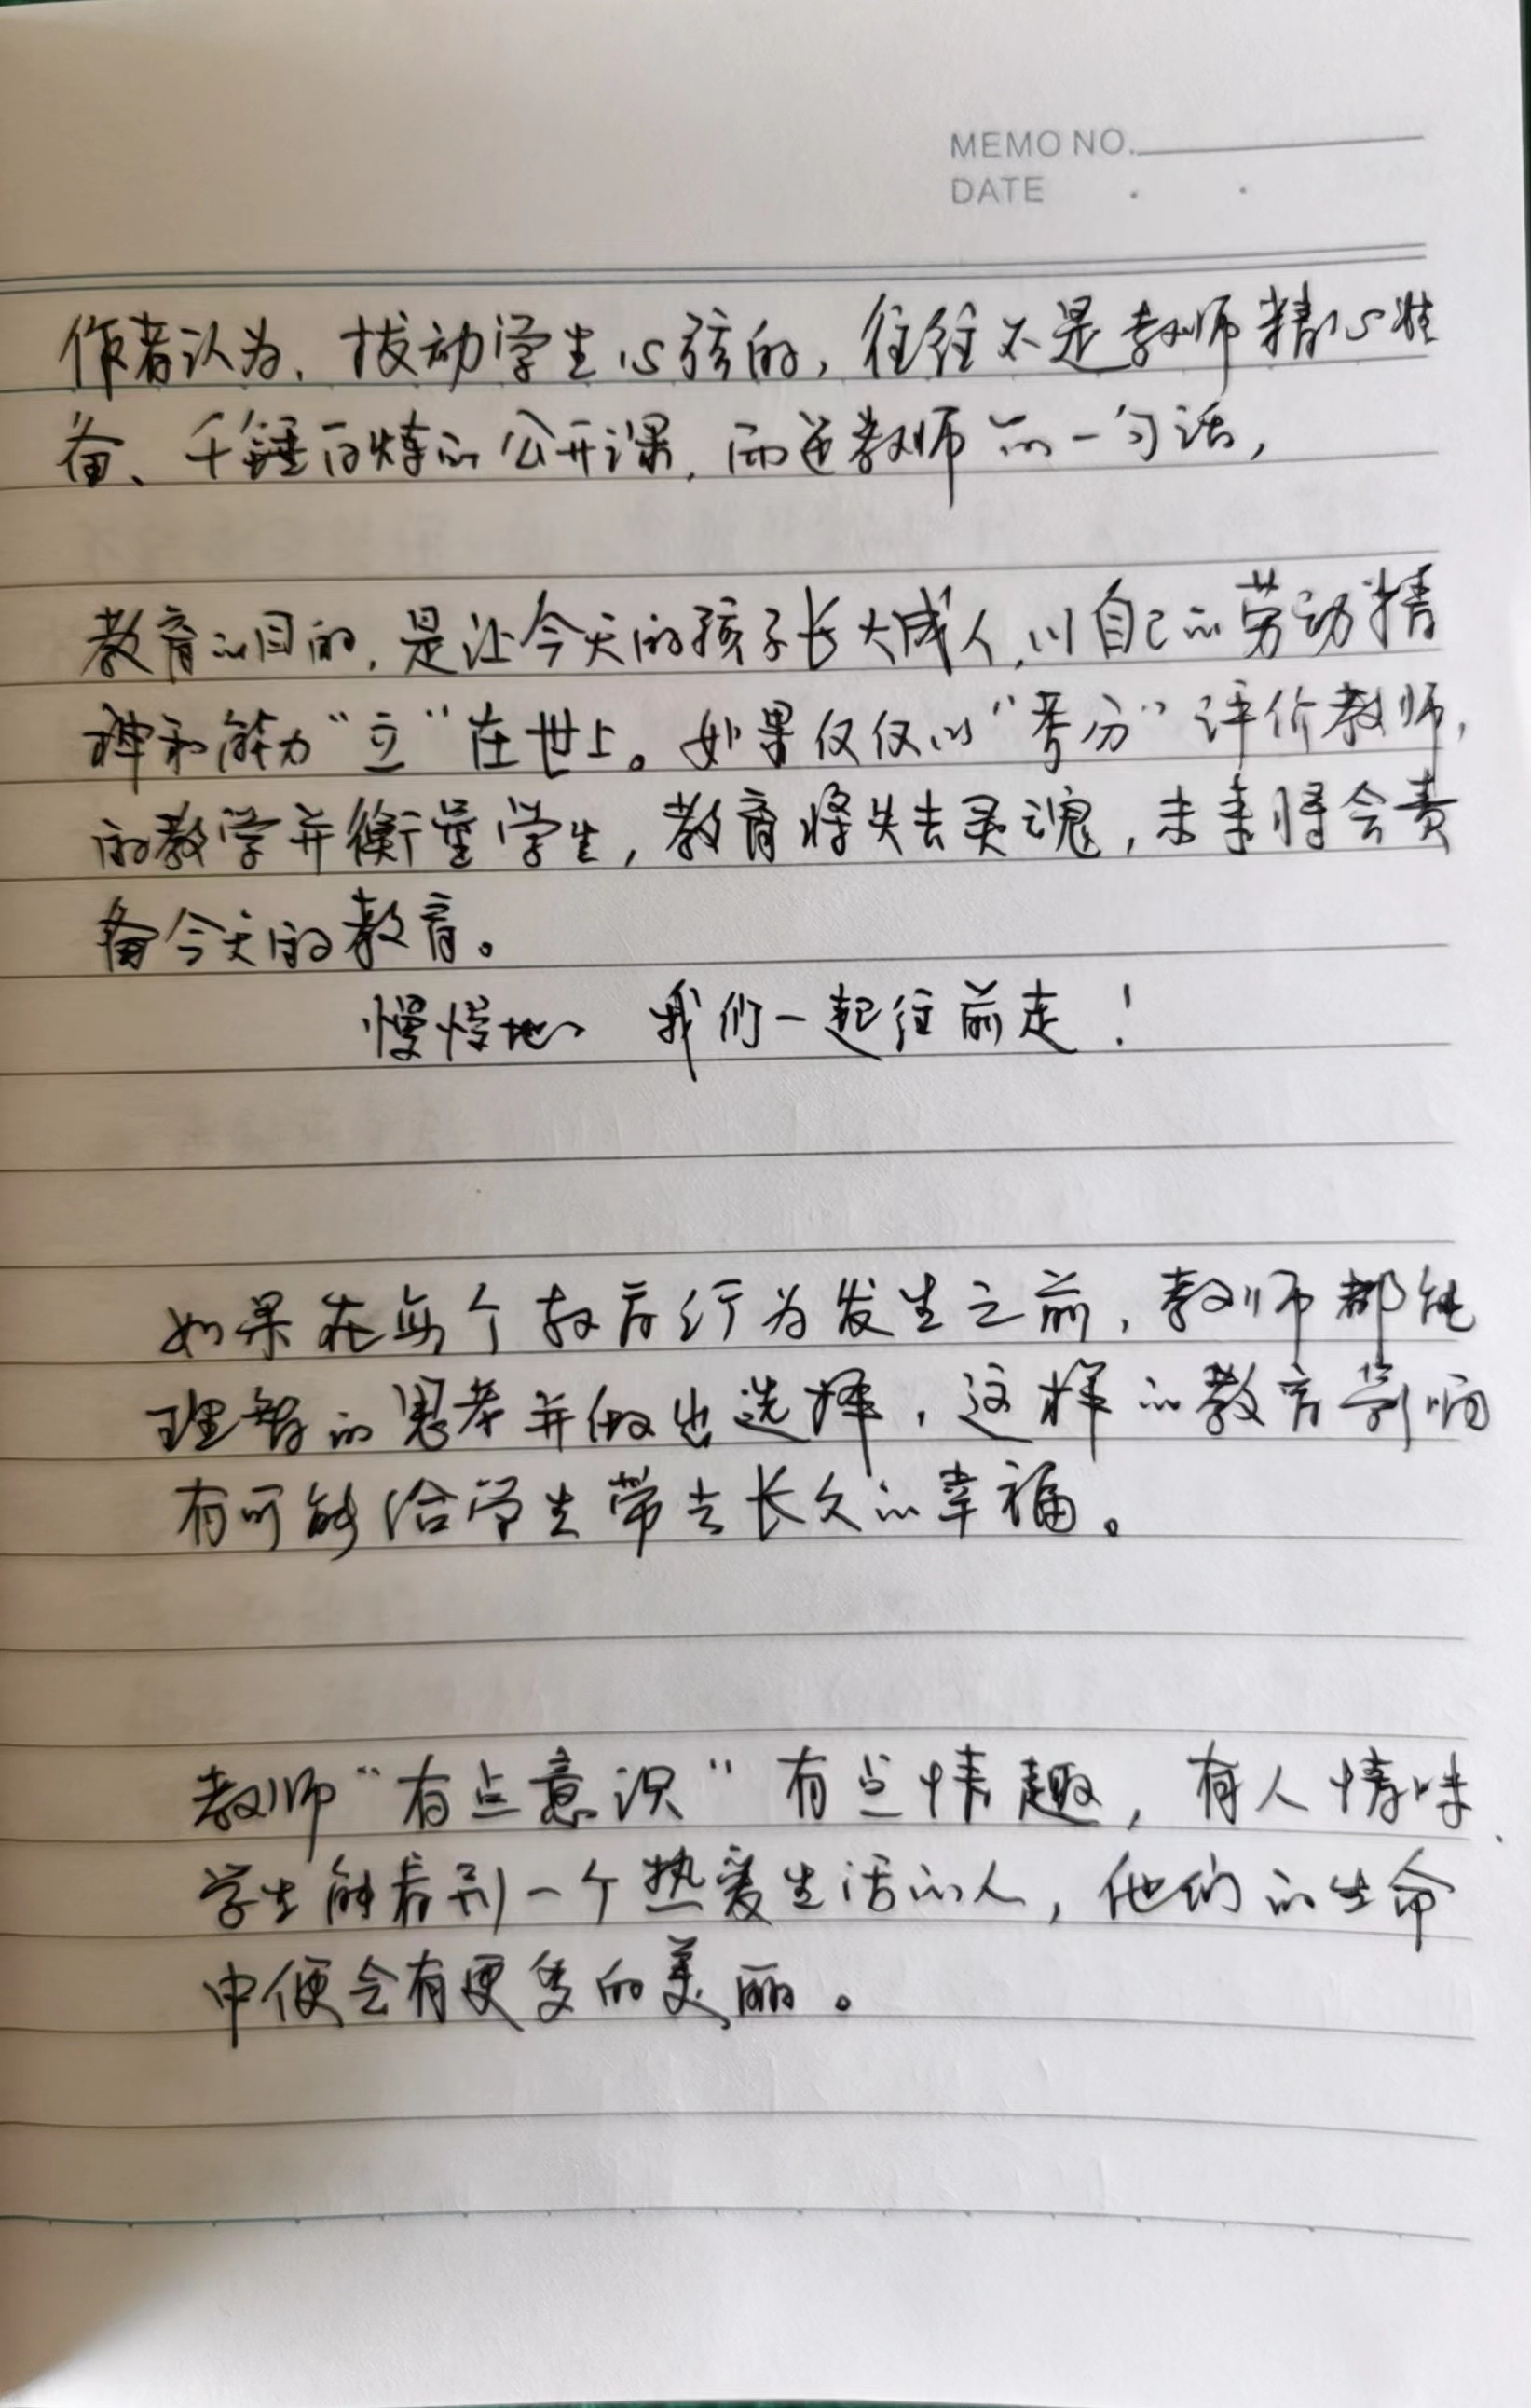 MEMO NO.
DATE
作者认为、拨动学生心弦的，往往不是教师精心准
备、千锤百炼的公开课，而是教师的一句话，
教育的目的，是让今天的孩子长大成人，以自己的劳动精
神和能力“立”在世上。如果仅仅以“考分”评价教师，
的教学并衡量学生，教育将失去灵魂，未来将会责
备今天的教育。
慢慢地 我们一起往前走！
如果在每个教育行为发生之前，教师都能
理智的思考并做出选择，这样的教育影响
有可能给学生带去长久的幸福。
教师“有点意识”有点情趣，有人情味、
学生能看到一个热爱生活的人，他们的生命
中便会有更多的美丽。